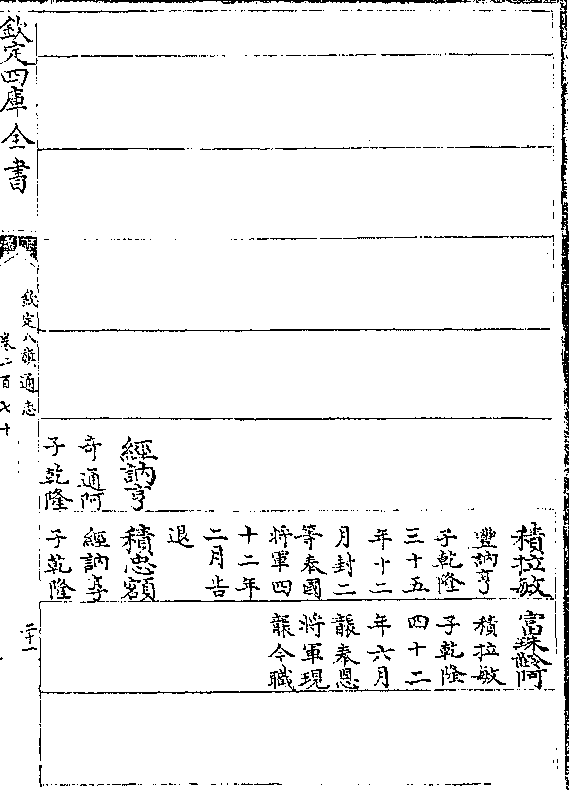 經訥亨
奇通阿
子乾隆
積拉敏
豐訥亨
子乾隆
三十五
年十二
月封二
等奉國
將軍四
十二年
二月告
退
積忠額
經訥亨
子乾隆
富珠齡阿
積拉敏
子乾隆
四十二
年六月
襲奉恩
將軍現
襲今職
欽定四庫全書
欽定八旗通志
卷二百七十